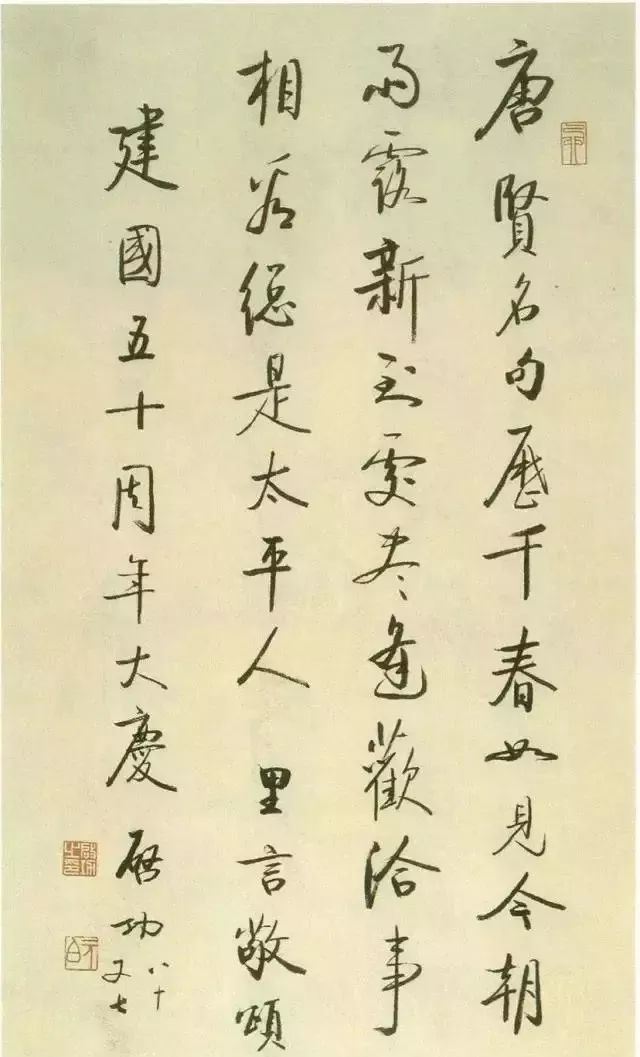 唐賢名句歷千春如見今朝
雨露新到處尽逢歡洽事
相看總是太平人 里言敬頌
建國五十周年大慶 啟功
八十
又七
元白